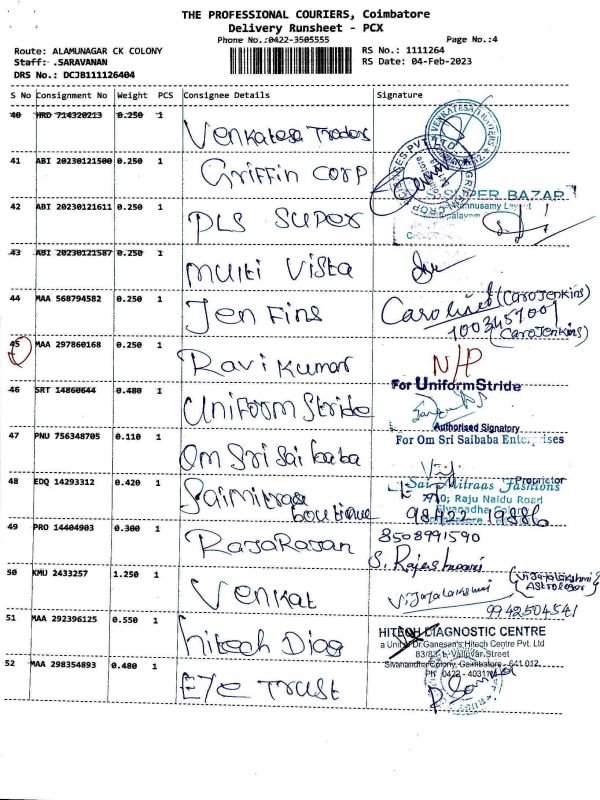 THE PROFESSIONAL COURIERS, Coimbatore
Delivery Runsheet - PCX
Phone No.:0422-3505555
Page No.:4
Route: ALAMUNAGAR CK COLONY
RS No.: 1111264
Staff: .SARAVANAN
RS Date: 04-Feb-2023
DRS No.: DCJB111126404
S No Consignment No Weight PCS Consignee Details Signature
40 HRD 714320213 0.250 1
Venkatesa Traders
VENKATESA TRADERS
41 ABI 20230121500 0.250 1
Griffin corp
SUPER BAZAR
42 ABI 20230121611 0.250 1
PLS SUPER
43 ABI 20230121587 0.250 1
multi Vista
44 MAA 568794582 0.250 1
Jen Fins
Caroline (CaroJenkins)
100345700
(CaroJenkins)
45 MAA 297860168 0.250 1
Ravi Kumar
N/P
46 SRT 14860644 0.480 1
Uniform Stride
For UniformStride
Authorised Signatory
47 PNU 756348705 0.110 1
Om Sri Sai baba
For Om Sri Saibaba Enterprises
Proprietor
48 EDQ 14293312 0.420 1
Saimitraas
boutique
Sai Mitraas Fashions
Raju Naidu Road
Sivanadha Colony
98422 19886
49 PRO 14404903 0.300 1
RajaRajan
8508991590
S. Rajeshwari
50 KMU 2433257 1.250 1
Venkat
Vijayalakshmi
(Vijayalakshmi
Astrologer)
9942504541
51 MAA 292396125 0.550 1
hitech Diag
HITECH DIAGNOSTIC CENTRE
a Unit of Dr.Ganesan's Hitech Centre Pvt. Ltd
83/83-1, Valluvar Street
Sivanandha Colony, Coimbatore - 641 012.
52 MAA 298354893 0.480 1
EYE TRUST